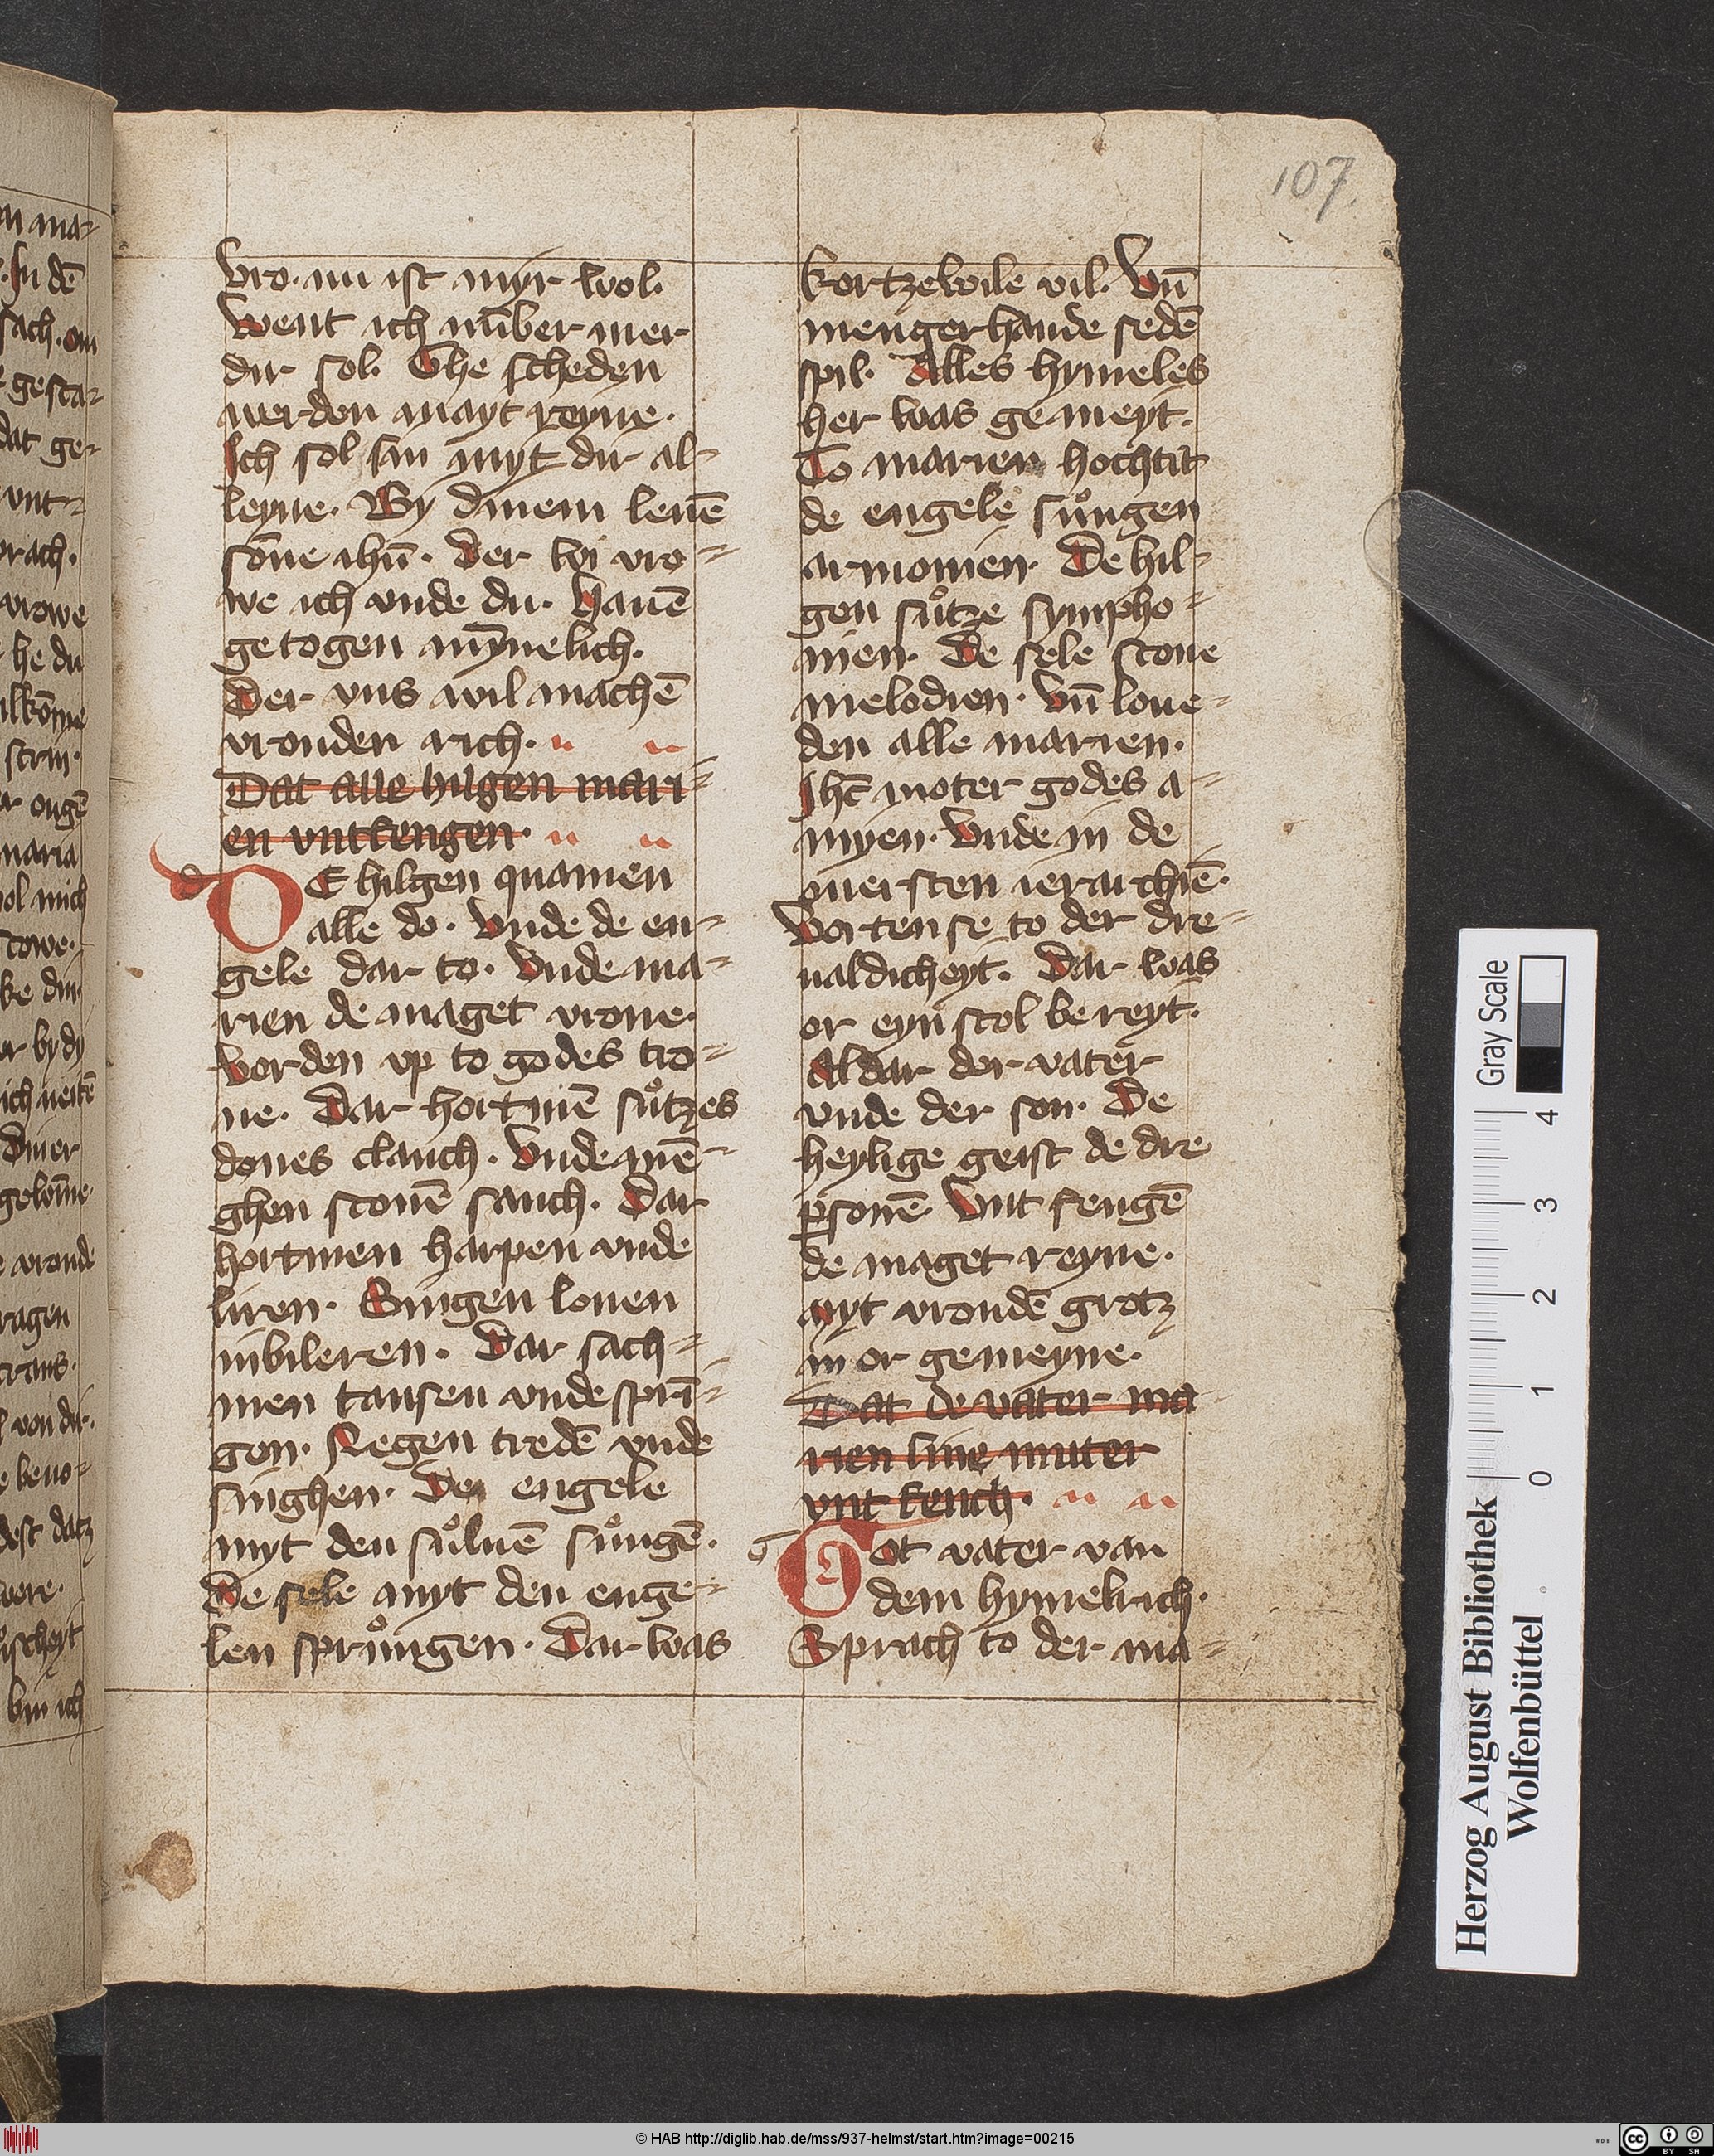 107
vro. nu ist myr wol.
Went ich nūber mer
dir sol. Ghe scheden
werden mayt reyne.
Ich sol sin myt dir al⸗
leyne. By dinem leuē
sōne ihū. Der wi vro⸗
we ich vnde du. Hauē
getogen mȳnelich.
Der vns wil machē
vrouden rich.
Dat alle hilgen mari⸗
en vntfengen.
DE hilgen quamen
alle do. Vnde de en⸗
gele dar to. Vnde ma⸗
rien de maget vrone.
Vorden vp to godes tro⸗
ne. Dar hortmē suͦtzes
dones clanch. Vnde mē⸗
ghen sconē sanch. Dar
hortmen harpen vnde
liren. Singen louen
iubileren. Dar sach⸗
men tansen vnde sprī⸗
gen. Regen tredē vnde
singhen. De engele
myt den suͦluē suͦngē.
De sele myt den enge⸗
len spruͦngen. Dar was
kortzewile vil. Vn̄
mengerhande sedē
spil. Alles hymeles
her was gemeyt.
To marien hochtit
de engele suͦngen
armonien. De hil⸗
gen suͦtze sympho⸗
nien. De sele scone
melodien. Vn̄ loue⸗
den alle marien.
Ihc̄ moter godes a⸗
myen. Vnde in de
ouersten ierarchiē.
Vorten se to der dre⸗
ualdicheyt. Dar was
or eyn stol bereyt.
Al dar der vater
vnde der son. De
heylige geist de dre
ꝑsonē Vnt fengē
de maget reyne.
myt vroudē grotz
in or gemeyne.
Dat de vater ma
rien sine muter
vnt fench.
Got vater van
dem hymelrich.
Sprach to der ma⸗
Gray Scale
4
3
2
1
0
Herzog August Bibliothek
Wolfenbüttel
© HAB http://diglib.hab.de/mss/937-helmst/start.htm?image=00215